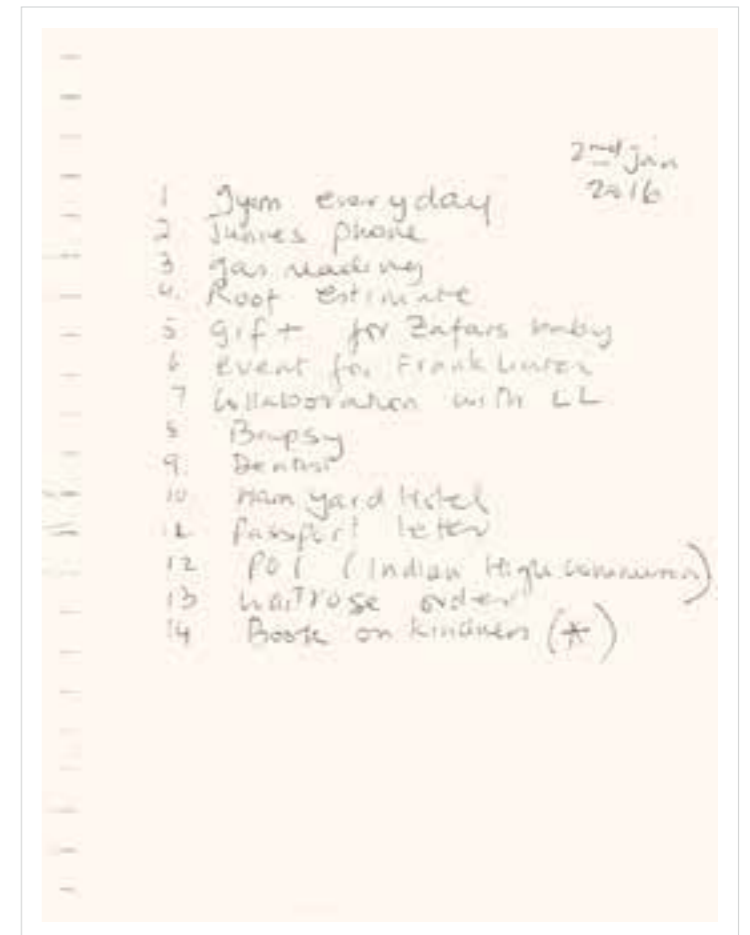 2nd Jan
2016
1 gym everyday
2 Junies phone
3 gas reading
4. Roof estimate
5 gift for Zafars baby
6 event for Frank
7 Collaboration with LL
8
9. Dentist
10 Ham yard Hotel
11 Passport letter
12 (Indian High Commission)
13 waitrose order
14 Book on kindness (*)